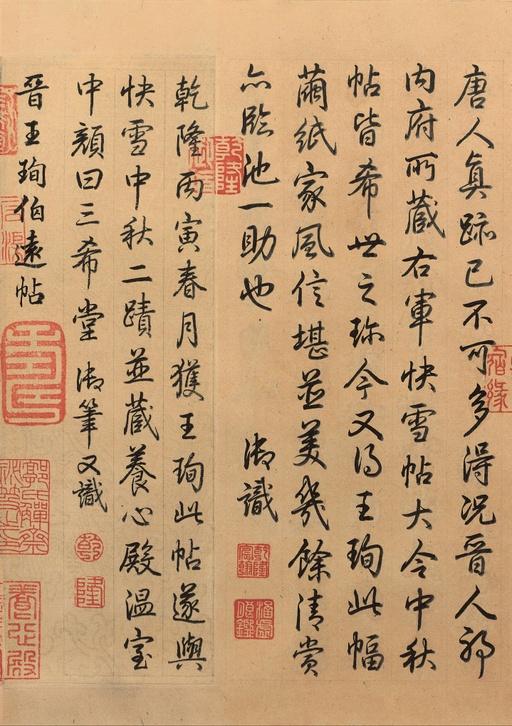 唐人真跡已不可多得况晉人耶
内府所蔵右軍快雪帖大令中秋
帖皆希世之珎今又得王珣此幅
繭紙家風信堪並美幾餘清賞
亦臨池一助也 御識
乾隆丙寅春月獲王珣此帖遂與
快雪中秋二蹟並蔵養心殿温室
中顔曰三希堂 御筆又識
乾
隆
晉王珣伯遠帖
乾隆
養心殿